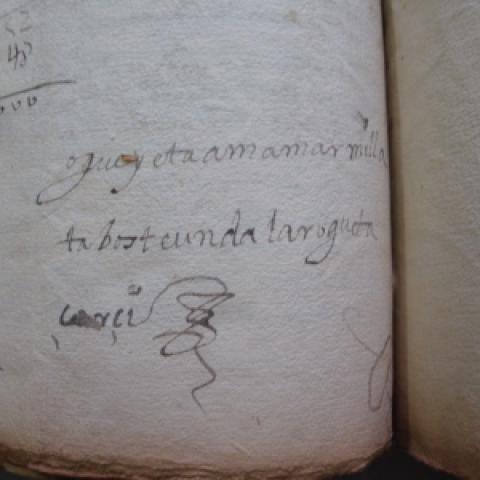 48
000
oguey eta amamar milla
ta bost eunda larogueta